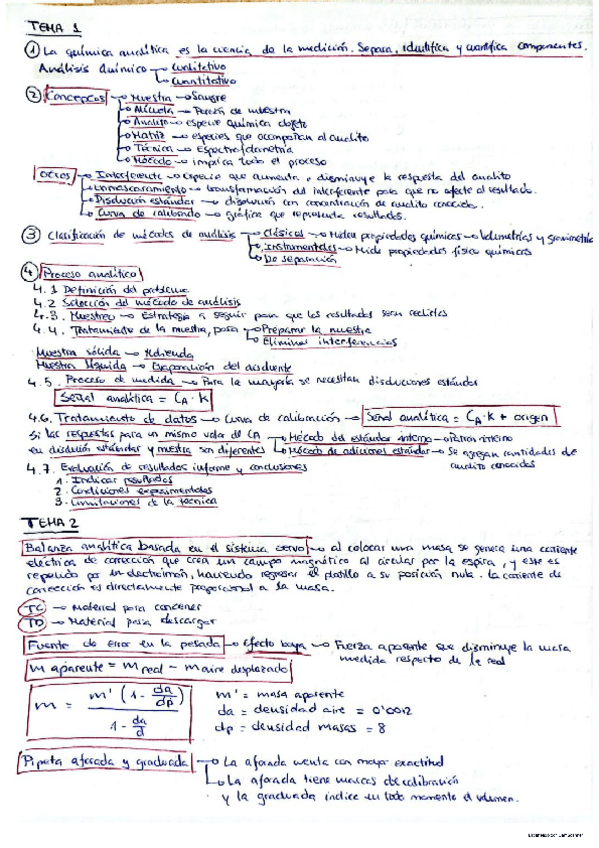 TEMA 1
① La química analítica es la ciencia de la medición. Separa, identifica y cuantifica componentes.
Análisis Químico → Cualitativo
↳ Cuantitativo
② Conceptos → Muestra → Sangre
↳ Alícuota → Porción de muestra
↳ Analito → especie química objeto
↳ Matriz → especies que acompañan al analito
↳ Técnica → Espectrofotometría
↳ Método → implica todo el proceso
Otros → Interferente → especie que aumenta o disminuye la respuesta del analito
↳ Enmascaramiento → transformación del interferente para que no afecte al resultado.
↳ Disolución estándar → disolución con concentración de analito conocida.
↳ Curva de calibrado → gráfica que representa resultados.
③ Clasificación de métodos de análisis → Clásicos → Miden propiedades químicas → Volumetrías y gravimetría
↳ Instrumentales → Mide propiedades físico químicas
↳ De separación
④ Proceso analítico
4.1 Definición del problema
4.2 Selección del método de análisis
4.3. Muestreo → Estrategia a seguir para que los resultados sean
4.4. Tratamiento de la muestra, para → Preparar la muestra
↳ Eliminar interferencias
Muestra sólida → Molienda
Muestra líquida → Evaporación del disolvente
4.5. Proceso de medida → Para la mayoría se necesitan disoluciones estándar
Señal analítica = CA · K
4.6. Tratamiento de datos → Curva de calibración → Señal analítica = CA · K + origen
Si las respuestas para un mismo valor del CA → Método del estándar interno → patrón interno
en disolución estándar y muestra son diferentes ↳ Método de adiciones estándar → Se agregan cantidades de
analito conocidas
4.7. Evaluación de resultados informe y conclusiones
1. Indicar resultados
2. Condiciones experimentales
3. Limitaciones de la técnica
TEMA 2
Balanza analítica basada en el sistema servo → al colocar una masa se genera una corriente
eléctrica de corrección que crea un campo magnético al circular por la espira, y este es
repelido por un electroimán, haciendo regresar el platillo a su posición nula. La corriente de
corrección es directamente proporcional a la masa.
TC → Material para contener
TD → Material para descargar
Fuente de error en la pesada → Efecto boya → Fuerza aparente que disminuye la masa
medida respecto de la real
m aparente = m real - m aire desplazado
m = m' (1 - da/dp) / 1 - da/d
m' = masa aparente
da = densidad aire = 0'0012
dp = densidad masas = 8
Pipeta aforada y graduada → La aforada cuenta con mayor exactitud
↳ La aforada tiene marcas de calibración
y la graduada indica en todo momento el volumen.